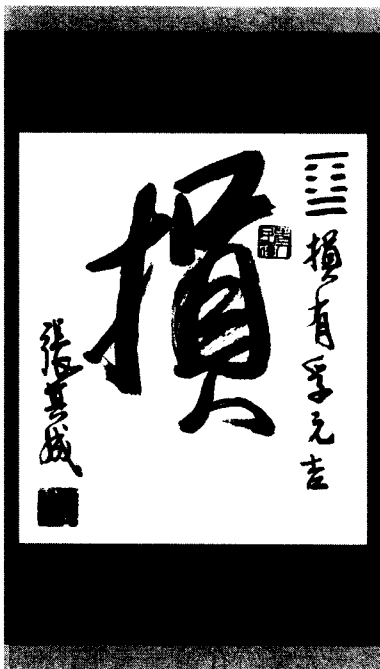 損有孚元吉
損
張其成